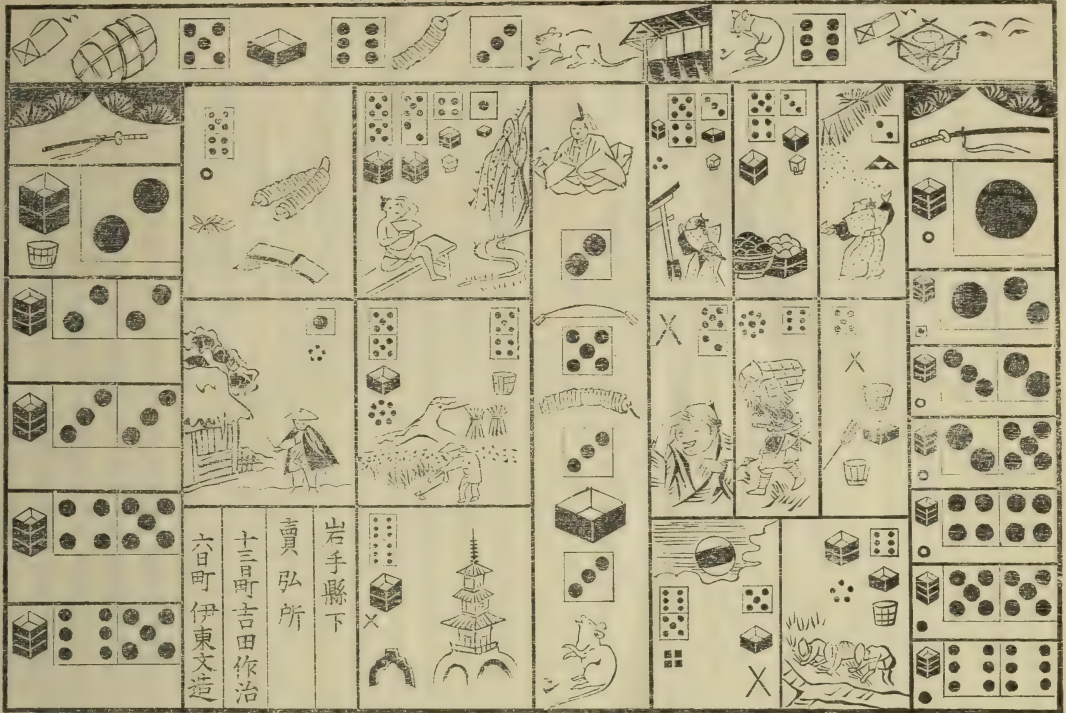 岩手縣下
賣弘所
十三日町吉田作治
六日町 伊東文造